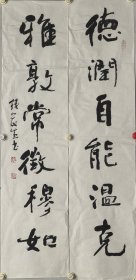 德潤自能溫克
雅敦常徵穆如